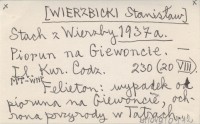 [WIERZBICKI Stanisław]
Stach z Wierzby 1937 a.
Piorun na Giewoncie. —
Il. Kur. Codz. 230 (20 VIII).
Felieton: wypadek od
pioruna na Giewoncie, och-
rona przyrody w Tatrach